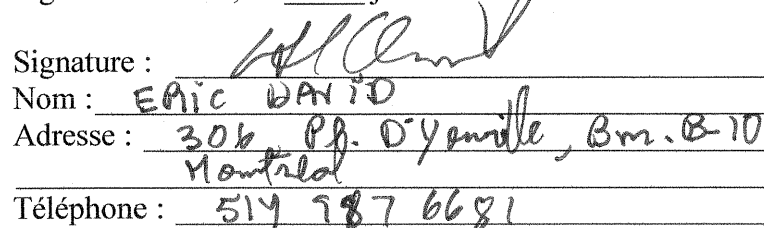 Signature :
Nom : ERIC DAVID
Adresse : 306, Pl. D'Youville, Bm. B-10
Montréal
Téléphone : 514 987 6681